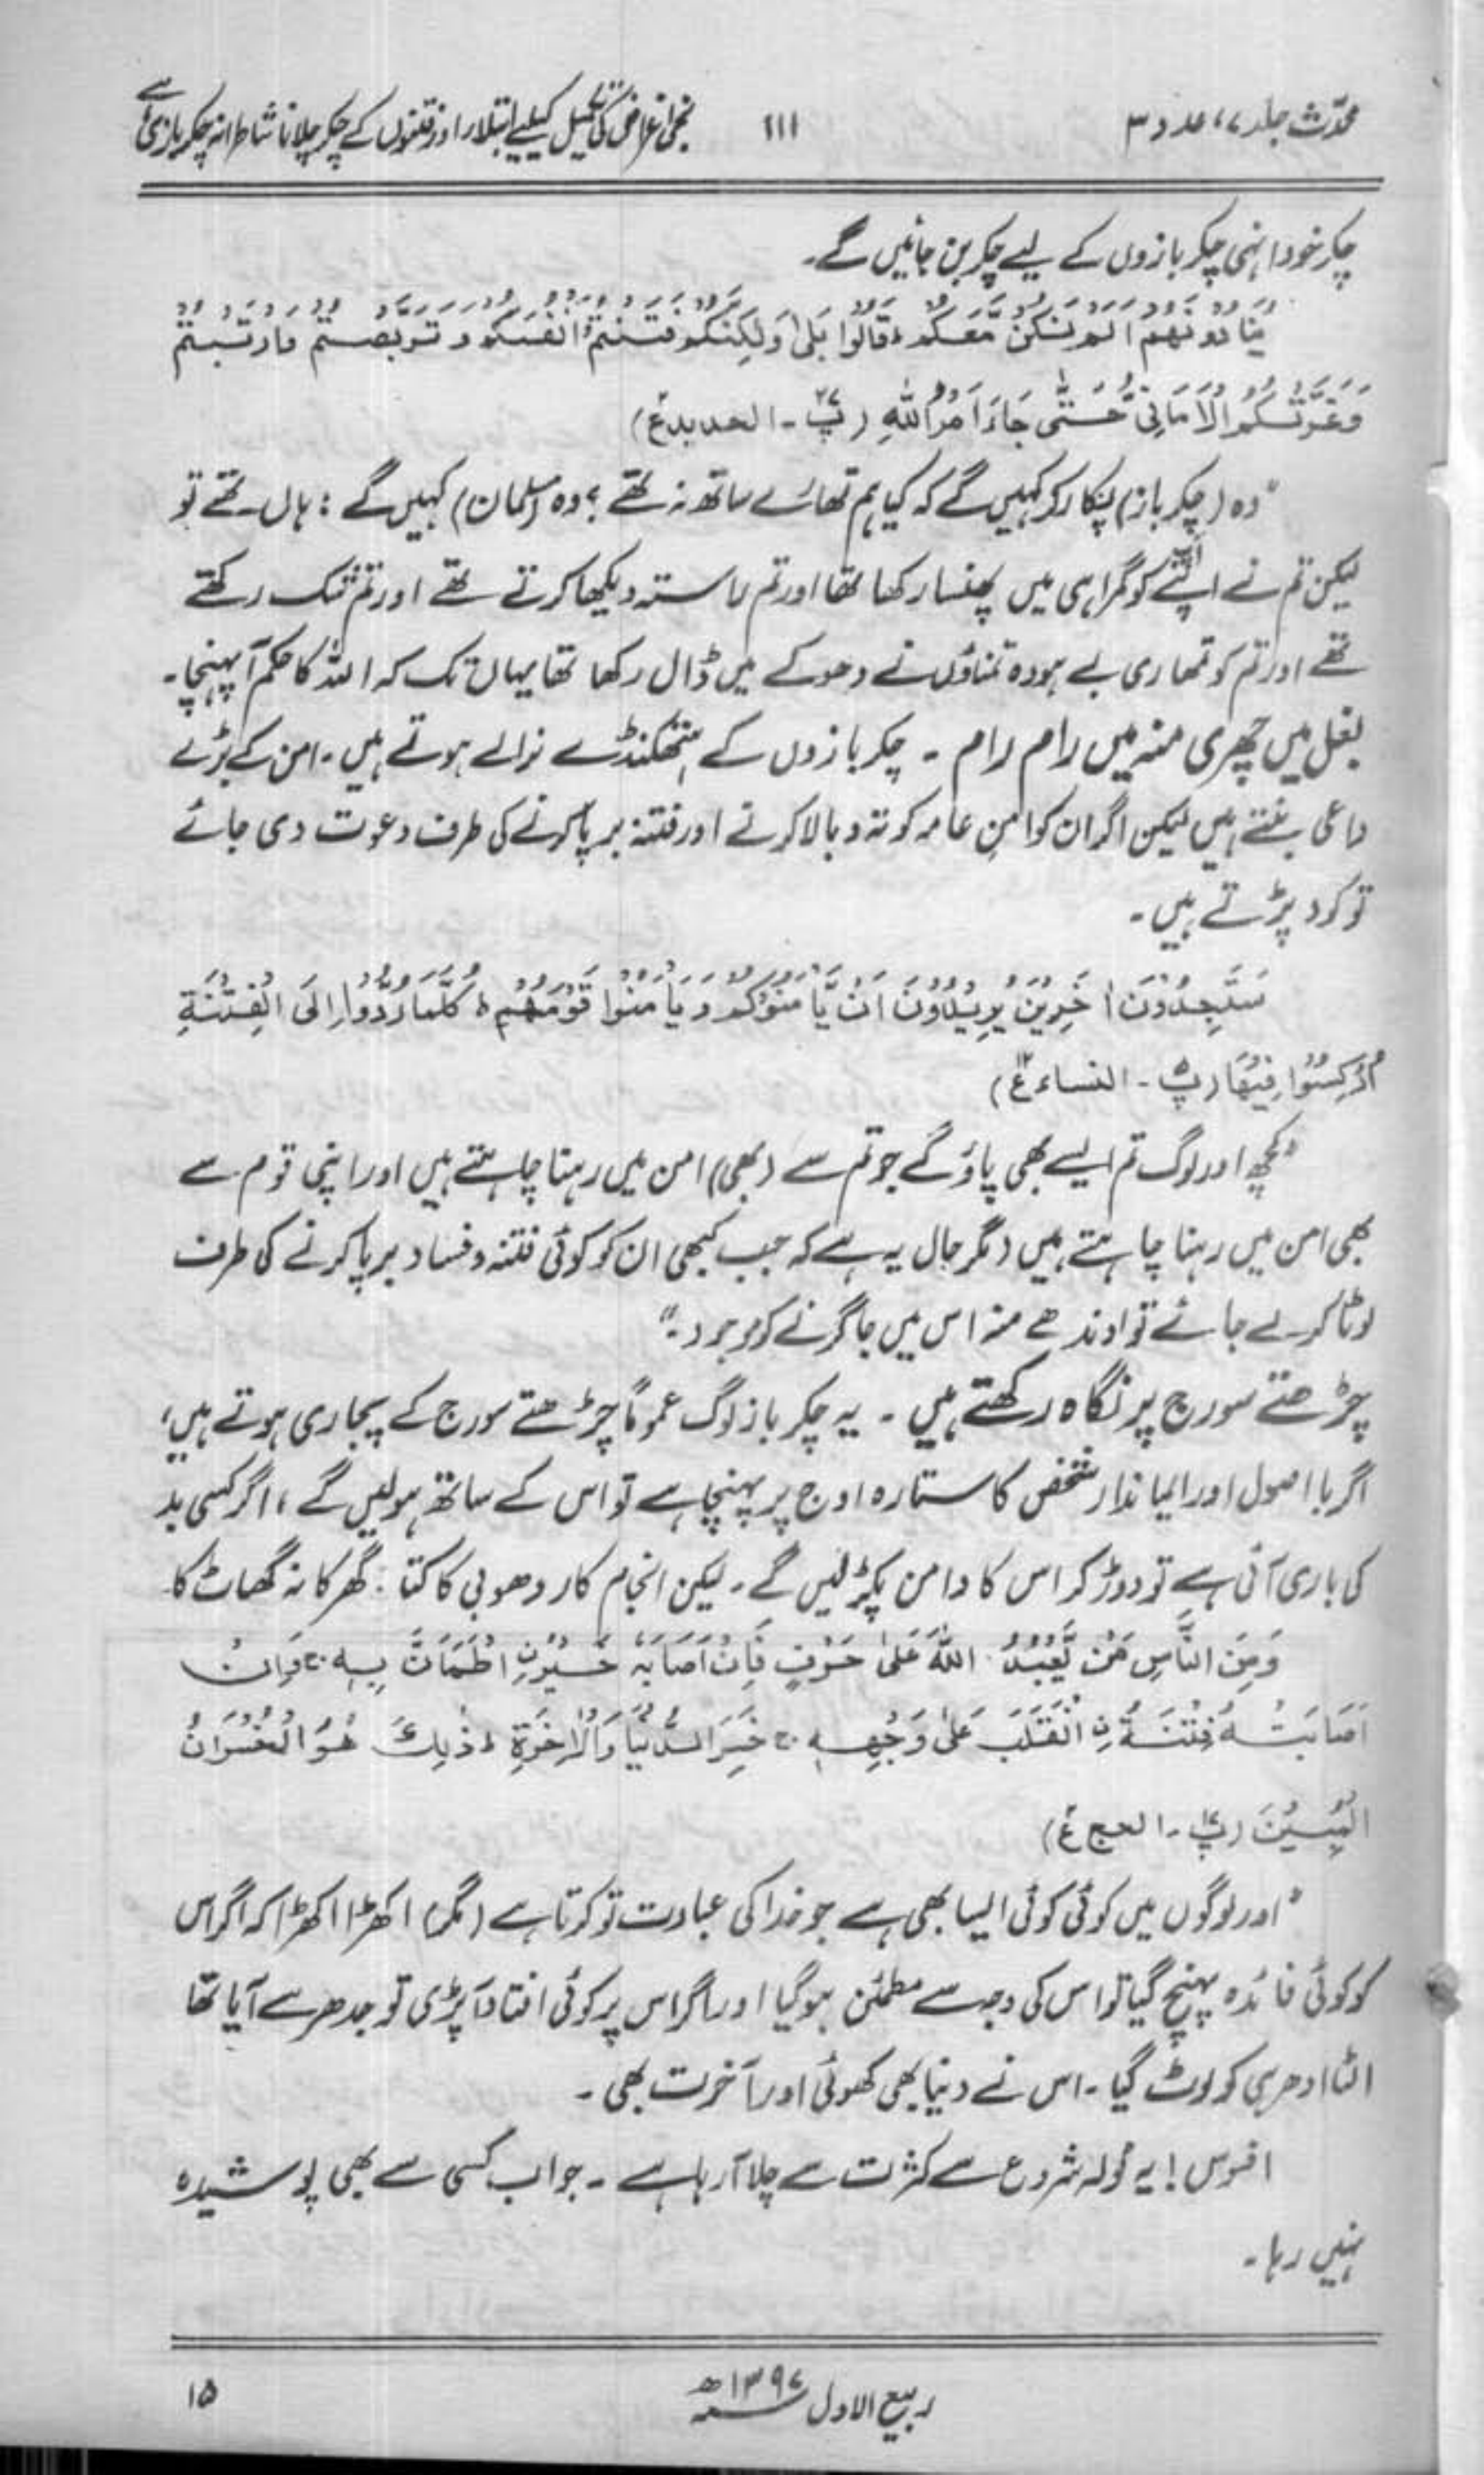 محدّث جلد ۷، عدد ۳
۱۱۱
نجی اغراض کی تکمیل کیلیے ابتلاء اور فتنوں کے چکر چلانا شاطرانہ چکر بازی ہے
چکر خود انہی چکر بازوں کے لیے چکر بن جائیں گے۔
يُنَادُوْنَهُمْ اَلَمْ نَكُنْ مَّعَكُمْ ؕ قَالُوْا بَلٰى وَلٰكِنَّكُمْ فَتَنْتُمْ اَنْفُسَكُمْ وَ تَرَبَّصْتُمْ وَارْتَبْتُمْ
وَغَرَّتْكُمُ الْاَمَانِيُّ حَتّٰى جَاءَ اَمْرُ اللّٰهِ (پ۲۷ - الحدید ع)
"وہ (چکر باز) پکار کر کہیں گے کہ کیا ہم تمہارے ساتھ نہ تھے؟ وہ (مسلمان) کہیں گے : ہاں تھے تو
لیکن تم نے اپنے کو گمراہی میں پھنسا رکھا تھا اور تم راستہ دیکھا کرتے تھے اور تم شک رکھتے
تھے اور تم کو تمھاری بے ہودہ تمناؤں نے دھوکے میں ڈال رکھا تھا یہاں تک کہ اللہ کا حکم آ پہنچا۔
بغل میں چھری منہ میں رام رام ۔ چکر بازوں کے ہتھکنڈے نرالے ہوتے ہیں۔ امن کے بڑے
داعی بنتے ہیں لیکن اگر ان کو امنِ عامہ کو تہ و بالا کرنے اور فتنہ برپا کرنے کی طرف دعوت دی جائے
تو کود پڑتے ہیں۔
سَتَجِدُوْنَ اٰخَرِيْنَ يُرِيْدُوْنَ اَنْ يَّاْمَنُوْكُمْ وَ يَاْمَنُوْا قَوْمَهُمْ ؕ كُلَّمَا رُدُّوْا اِلَى الْفِتْنَةِ
اُرْكِسُوْا فِيْهَا (پ۵ - النساء ع۱۲)
"کچھ اور لوگ تم ایسے بھی پاؤ گے جو تم سے (بھی) امن میں رہنا چاہتے ہیں اور اپنی قوم سے
بھی امن میں رہنا چاہتے ہیں (مگر حال یہ ہے کہ جب کبھی ان کو کوئی فتنہ و فساد برپا کرنے کی طرف
لوٹا کر لے جائے تو اوندھے منہ اس میں جا گرنے کو موجود۔"
چڑھتے سورج پر نگاہ رکھتے ہیں ۔ یہ چکر باز لوگ عموماً چڑھتے سورج کے پجاری ہوتے ہیں،
اگر با اصول اور ایماندار شخص کا ستارہ اوج پر پہنچا ہے تو اس کے ساتھ ہولیں گے، اگر کسی بد
کی باری آئی ہے تو دوڑ کر اس کا دامن پکڑ لیں گے۔ لیکن انجام کار دھوبی کا کتا : گھر کا نہ گھاٹ کا
وَمِنَ النَّاسِ مَنْ يَّعْبُدُ اللّٰهَ عَلٰى حَرْفٍ فَاِنْ اَصَابَهٗ خَيْرُنِ اطْمَاَنَّ بِهٖ ج وَاِنْ
اَصَابَتْهُ فِتْنَةُ نِ انْقَلَبَ عَلٰى وَجْهِهٖ ج خَسِرَ الدُّنْيَا وَالْاٰخِرَةِ ؕ ذٰلِكَ هُوَ الْخُسْرَانُ
الْمُبِيْنُ (پ۱۷ - الحج ع)
"اور لوگوں میں کوئی کوئی ایسا بھی ہے جو خدا کی عبادت تو کرتا ہے (مگر) اکھڑا اکھڑا کہ اگر اس
کو کوئی فائدہ پہنچ گیا تو اس کی وجہ سے مطمئن ہوگیا اور اگر اس پر کوئی افتاد آ پڑی تو جدھر سے آیا تھا
الٹا ادھر ہی کو لوٹ گیا۔ اس نے دنیا بھی کھوئی اور آخرت بھی ۔
افسوس! یہ ٹولہ شروع سے کثرت سے چلا آ رہا ہے ۔ جو اب کسی سے بھی پوشیدہ
نہیں رہا۔
ربیع الاول ۱۳۹۷ھ
۱۵